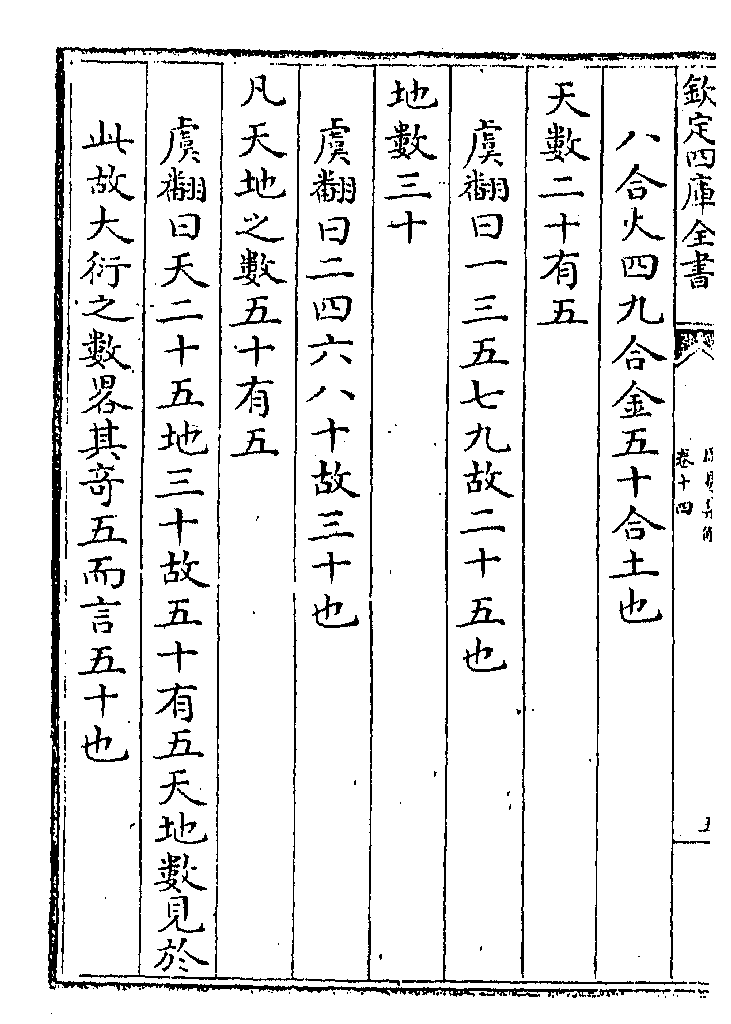 欽定四庫全書
卷十四
八合火四九合金五十合土也
天數二十有五
虞翻曰一三五七九故二十五也
地數三十
虞翻曰二四六八十故三十也
凡天地之數五十有五
虞翻曰天二十五地三十故五十有五天地數見於
此故大衍之數畧其奇五而言五十也